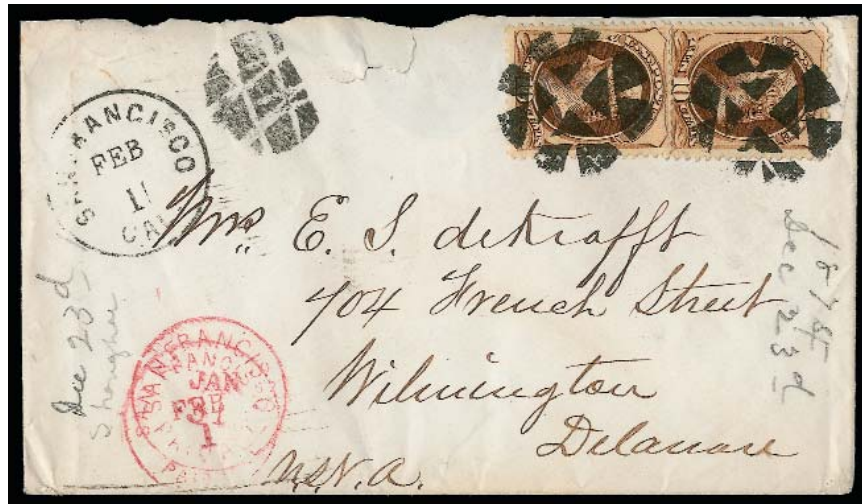 SAN FRANCISCO
FEB
11
CAL
Mrs. E. S. deKrafft
704 French Street
Wilmington
Delaware
U.S.N.A.
Dec 23d
Shanghai
Dec 23d
SAN FRANCISCO
JAN
31
FEB
1